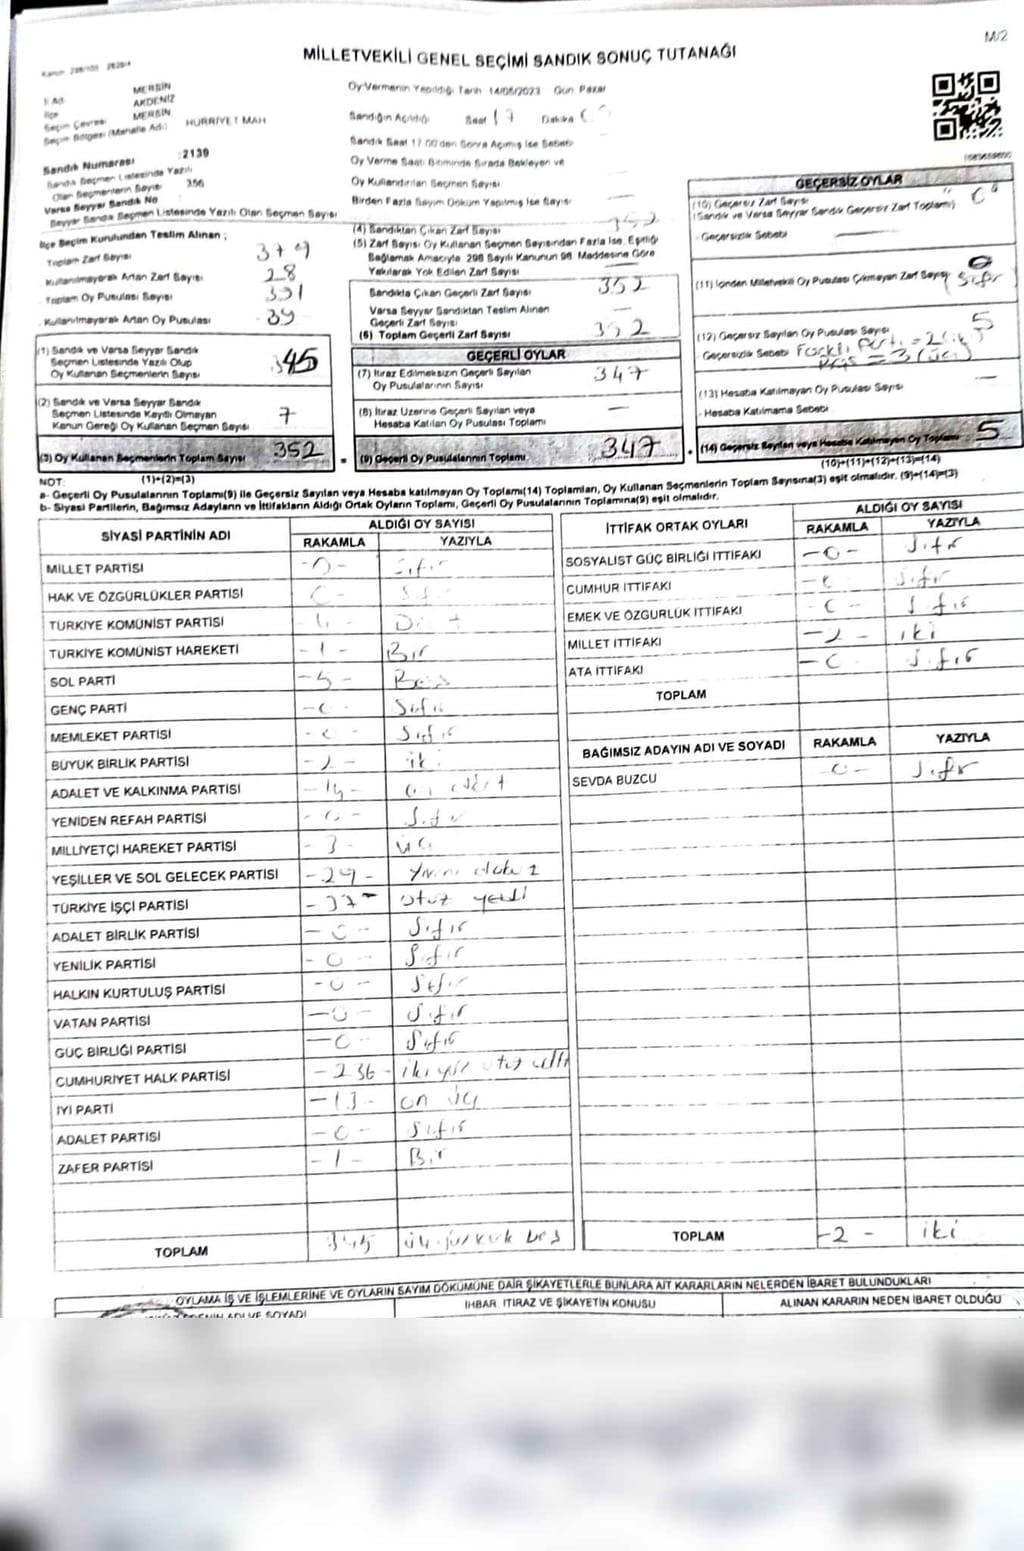 M/2
MİLLETVEKİLİ GENEL SEÇİMİ SANDIK SONUÇ TUTANAĞI
İl Adı MERSİN
İlçe AKDENİZ
Seçim Çevresi MERSİN
Seçim Bölgesi (Mahalle Adı) HÜRRİYET MAH
Sandık Numarası :2139
Sandık Seçmen Listesinde Yazılı
Olan Seçmenlerin Sayısı 356
Varsa Seyyar Sandık No
Seyyar Sandık Seçmen Listesinde Yazılı Olan Seçmen Sayısı
Oy Vermenin Yapıldığı Tarih 14/05/2023 Gün Pazar
Sandığın Açıldığı Saat 17 Dakika
Sandık Saat 17.00'den Sonra Açılmış İse Sebebi
Oy Verme Saati Bitiminde Sırada Bekleyen ve
Oy Kullandırılan Seçmen Sayısı
Birden Fazla Sayım Döküm Yapılmış İse Sayısı
İlçe Seçim Kurulundan Teslim Alınan ;
Toplam Zarf Sayısı 379
Kullanılmayarak Artan Zarf Sayısı 28
Toplam Oy Pusulası Sayısı 391
Kullanılmayarak Artan Oy Pusulası 39
(1) Sandık ve Varsa Seyyar Sandık
Seçmen Listesinde Yazılı Olup
Oy Kullanan Seçmenlerin Sayısı 345
(2) Sandık ve Varsa Seyyar Sandık
Seçmen Listesinde Kayıtlı Olmayan
Kanun Gereği Oy Kullanan Seçmen Sayısı 7
(3) Oy Kullanan Seçmenlerin Toplam Sayısı 352
(1)+(2)=(3)
(4) Sandıktan Çıkan Zarf Sayısı 352
(5) Zarf Sayısı Oy Kullanan Seçmen Sayısından Fazla İse, Eşitliği
Sağlamak Amacıyla 298 Sayılı Kanunun 98. Maddesine Göre
Yakılarak Yok Edilen Zarf Sayısı
Sandıkta Çıkan Geçerli Zarf Sayısı 352
Varsa Seyyar Sandıktan Teslim Alınan
Geçerli Zarf Sayısı
(6) Toplam Geçerli Zarf Sayısı 352
GEÇERLİ OYLAR
(7) İtiraz Edilmeksizin Geçerli Sayılan
Oy Pusulalarının Sayısı 347
(8) İtiraz Üzerine Geçerli Sayılan veya
Hesaba Katılan Oy Pusulası Toplamı —
(9) Geçerli Oy Pusulalarının Toplamı 347
GEÇERSİZ OYLAR
(10) Geçersiz Zarf Sayısı
(Sandık ve Varsa Seyyar Sandık Geçersiz Zarf Toplamı) "0"
- Geçersizlik Sebebi
(11) İçinden Milletvekili Oy Pusulası Çıkmayan Zarf Sayısı 0 (sıfır)
(12) Geçersiz Sayılan Oy Pusulası Sayısı 5
- Geçersizlik Sebebi
(13) Hesaba Katılmayan Oy Pusulası Sayısı —
- Hesaba Katılmama Sebebi
(14) Geçersiz Sayılan veya Hesaba Katılmayan Oy Toplamı 5
(10)+(11)+(12)+(13)=(14)
NOT:
a- Geçerli Oy Pusulalarının Toplamı(9) ile Geçersiz Sayılan veya Hesaba katılmayan Oy Toplamı(14) Toplamları, Oy Kullanan Seçmenlerin Toplam Sayısına(3) eşit olmalıdır. (9)+(14)=(3)
b- Siyasi Partilerin, Bağımsız Adayların ve İttifakların Aldığı Ortak Oyların Toplamı, Geçerli Oy Pusulalarının Toplamına(9) eşit olmalıdır.
SİYASİ PARTİNİN ADI ALDIĞI OY SAYISI
RAKAMLA YAZIYLA
MİLLET PARTİSİ -0- sıfır
HAK VE ÖZGÜRLÜKLER PARTİSİ
TÜRKİYE KOMÜNİST PARTİSİ -4- Dört
TÜRKİYE KOMÜNİST HAREKETİ -1- Bir
SOL PARTİ -5- Beş
GENÇ PARTİ -0- Sıfır
MEMLEKET PARTİSİ -0- sıfır
BÜYÜK BİRLİK PARTİSİ -2- iki
ADALET VE KALKINMA PARTİSİ -14- on dört
YENİDEN REFAH PARTİSİ -0- sıfır
MİLLİYETÇİ HAREKET PARTİSİ -3- üç
YEŞİLLER VE SOL GELECEK PARTİSİ -29- Yirmi dokuz
TÜRKİYE İŞÇİ PARTİSİ -37- otuz yedi
ADALET BİRLİK PARTİSİ -0- sıfır
YENİLİK PARTİSİ -0- sıfır
HALKIN KURTULUŞ PARTİSİ -0- sıfır
VATAN PARTİSİ -0- sıfır
GÜÇ BİRLİĞİ PARTİSİ -0- sıfır
CUMHURİYET HALK PARTİSİ -236- iki yüz otuz altı
İYİ PARTİ -13- on üç
ADALET PARTİSİ -0- sıfır
ZAFER PARTİSİ -1- Bir
TOPLAM 345 üç yüz kırk beş
İTTİFAK ORTAK OYLARI ALDIĞI OY SAYISI
RAKAMLA YAZIYLA
SOSYALİST GÜÇ BİRLİĞİ İTTİFAKI -0- sıfır
CUMHUR İTTİFAKI -0- sıfır
EMEK VE ÖZGÜRLÜK İTTİFAKI -0- sıfır
MİLLET İTTİFAKI -2- iki
ATA İTTİFAKI -0- sıfır
TOPLAM
BAĞIMSIZ ADAYIN ADI VE SOYADI RAKAMLA YAZIYLA
SEVDA BUZCU -0- sıfır
TOPLAM -2- iki
OYLAMA İŞ VE İŞLEMLERİNE VE OYLARIN SAYIM DÖKÜMÜNE DAİR ŞİKAYETLERLE BUNLARA AİT KARARLARIN NELERDEN İBARET BULUNDUKLARI
İHBAR, İTİRAZ VE ŞİKAYETİN KONUSU ALINAN KARARIN NEDEN İBARET OLDUĞU